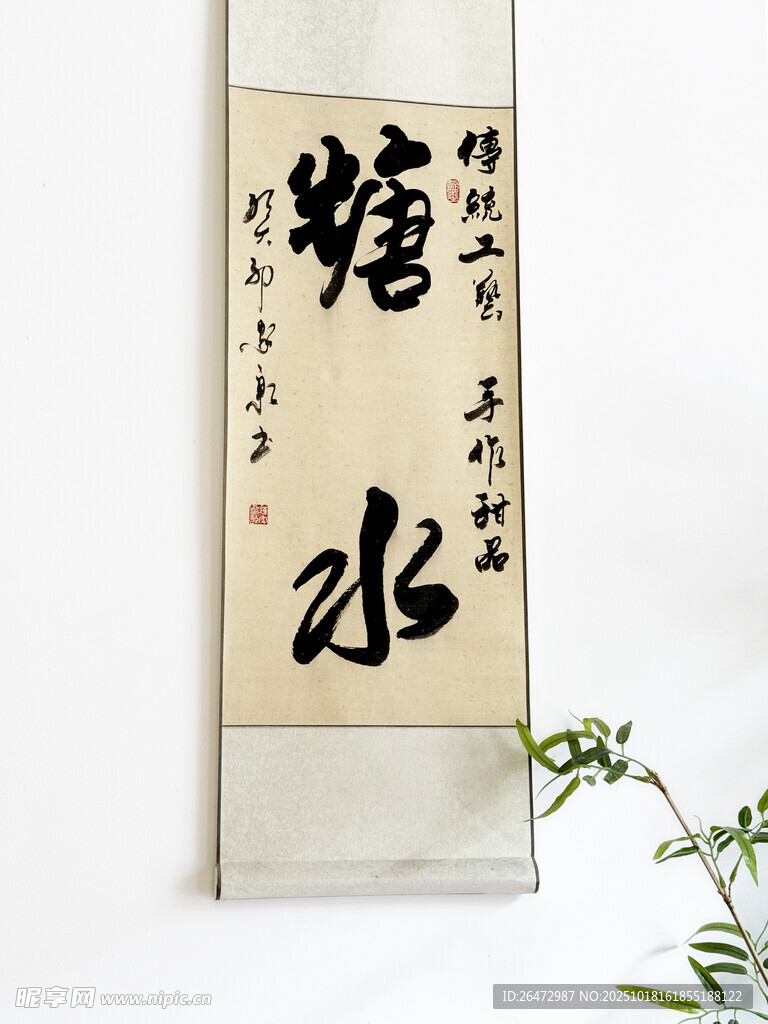 傳統工藝 手作甜品
糖水
癸卯
书
昵享网 www.nipic.cn
ID:26472987 NO:20251018161855188122